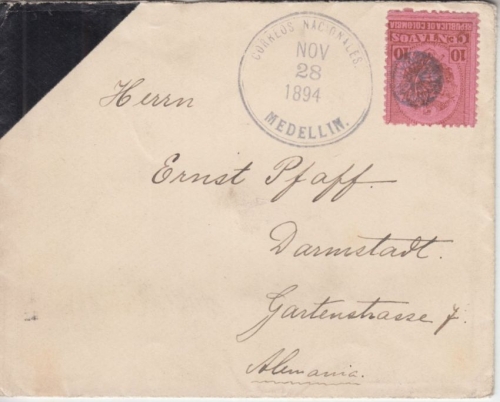 CORREOS NACIONALES.
NOV
28
1894
MEDELLIN.
REPUBLICA DE COLOMBIA
CENTAVOS
10 10
Herrn
Ernst Pfaff.
Darmstadt.
Gartenstrasse 7.
Alemania.